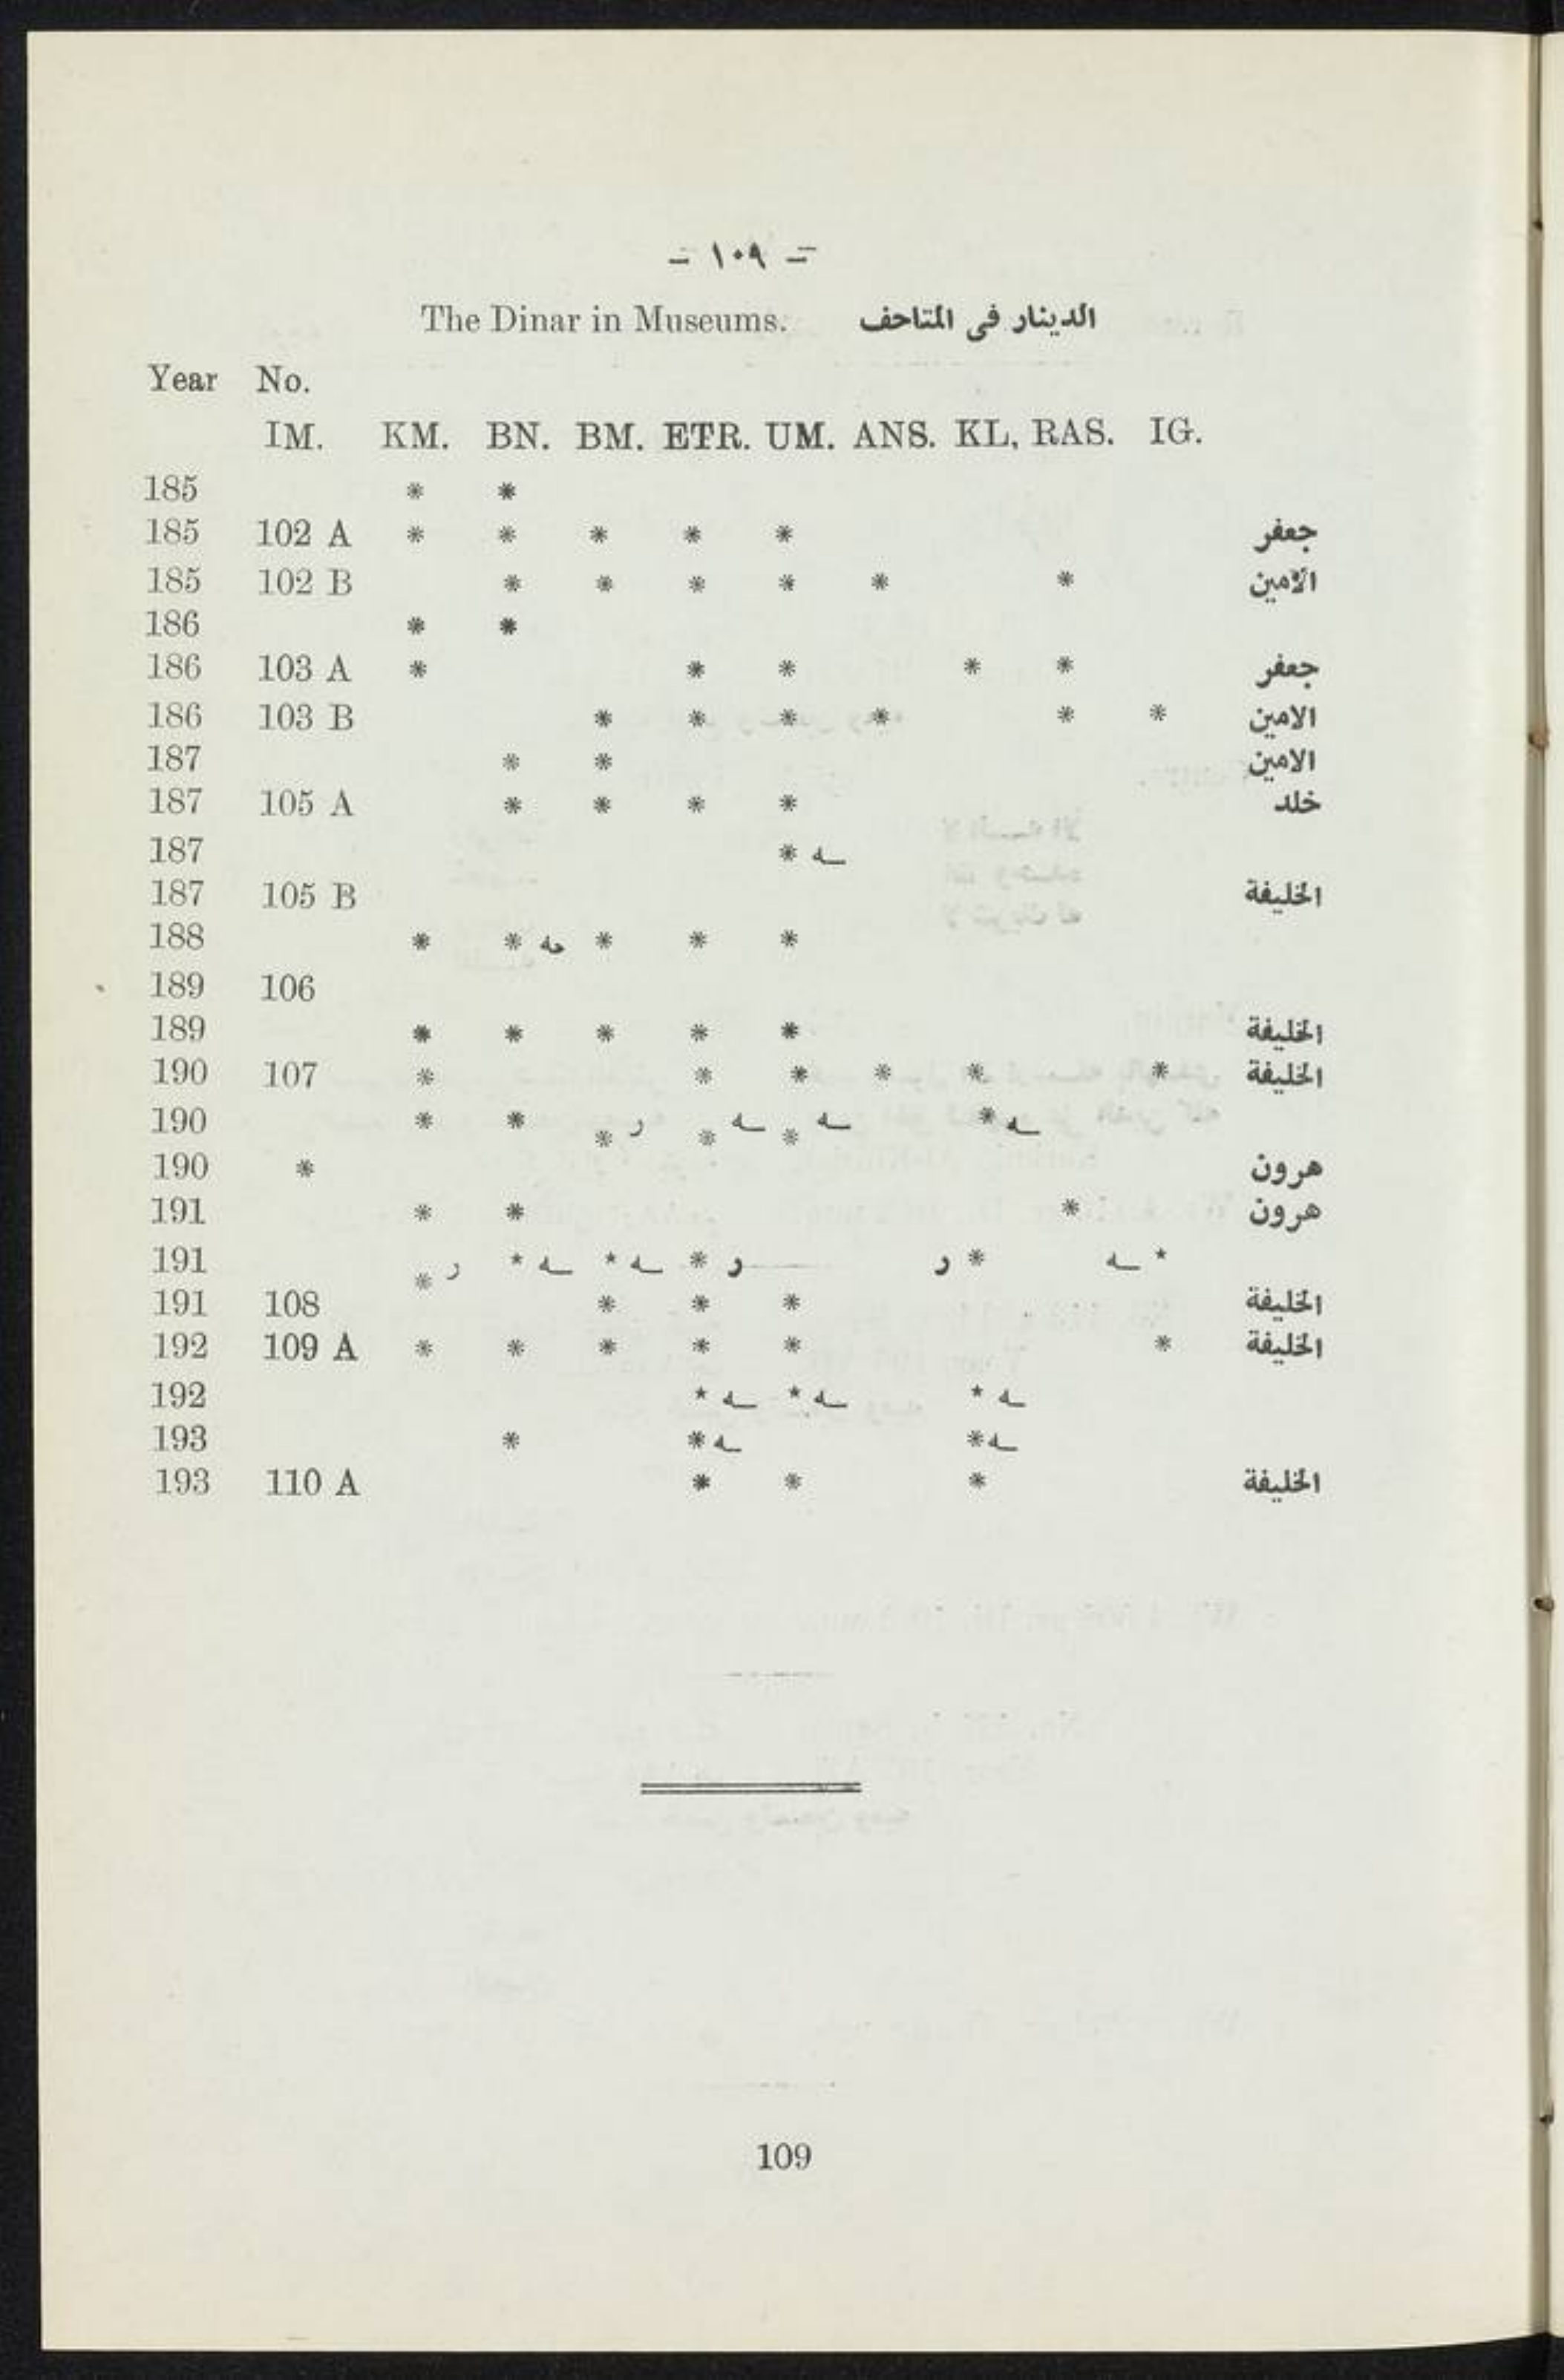 – ١٠٩ –
The Dinar in Museums. الدينار في المتاحف
Year No.
IM. KM. BN. BM. ETR. UM. ANS. KL, RAS. IG.
185 * *
185 102 A * * * * * جعفر
185 102 B * * * * * * الأمين
186 * *
186 103 A * * * * * جعفر
186 103 B * * * * * * الامين
187 * * الامين
187 105 A * * * * خلد
187 * ـه
187 105 B الخليفة
188 * * حه * * *
189 106
189 * * * * * الخليفة
190 107 * * * * * * الخليفة
190 * * * ر * ـه * ـه * ـه
190 * هرون
191 * * * هرون
191 * ر * ـه * ـه * ر ر * ـه *
191 108 * * * الخليفة
192 109 A * * * * * * الخليفة
192 * ـه * ـه * ـه
193 * * ـه * ـه
193 110 A * * * الخليفة
109